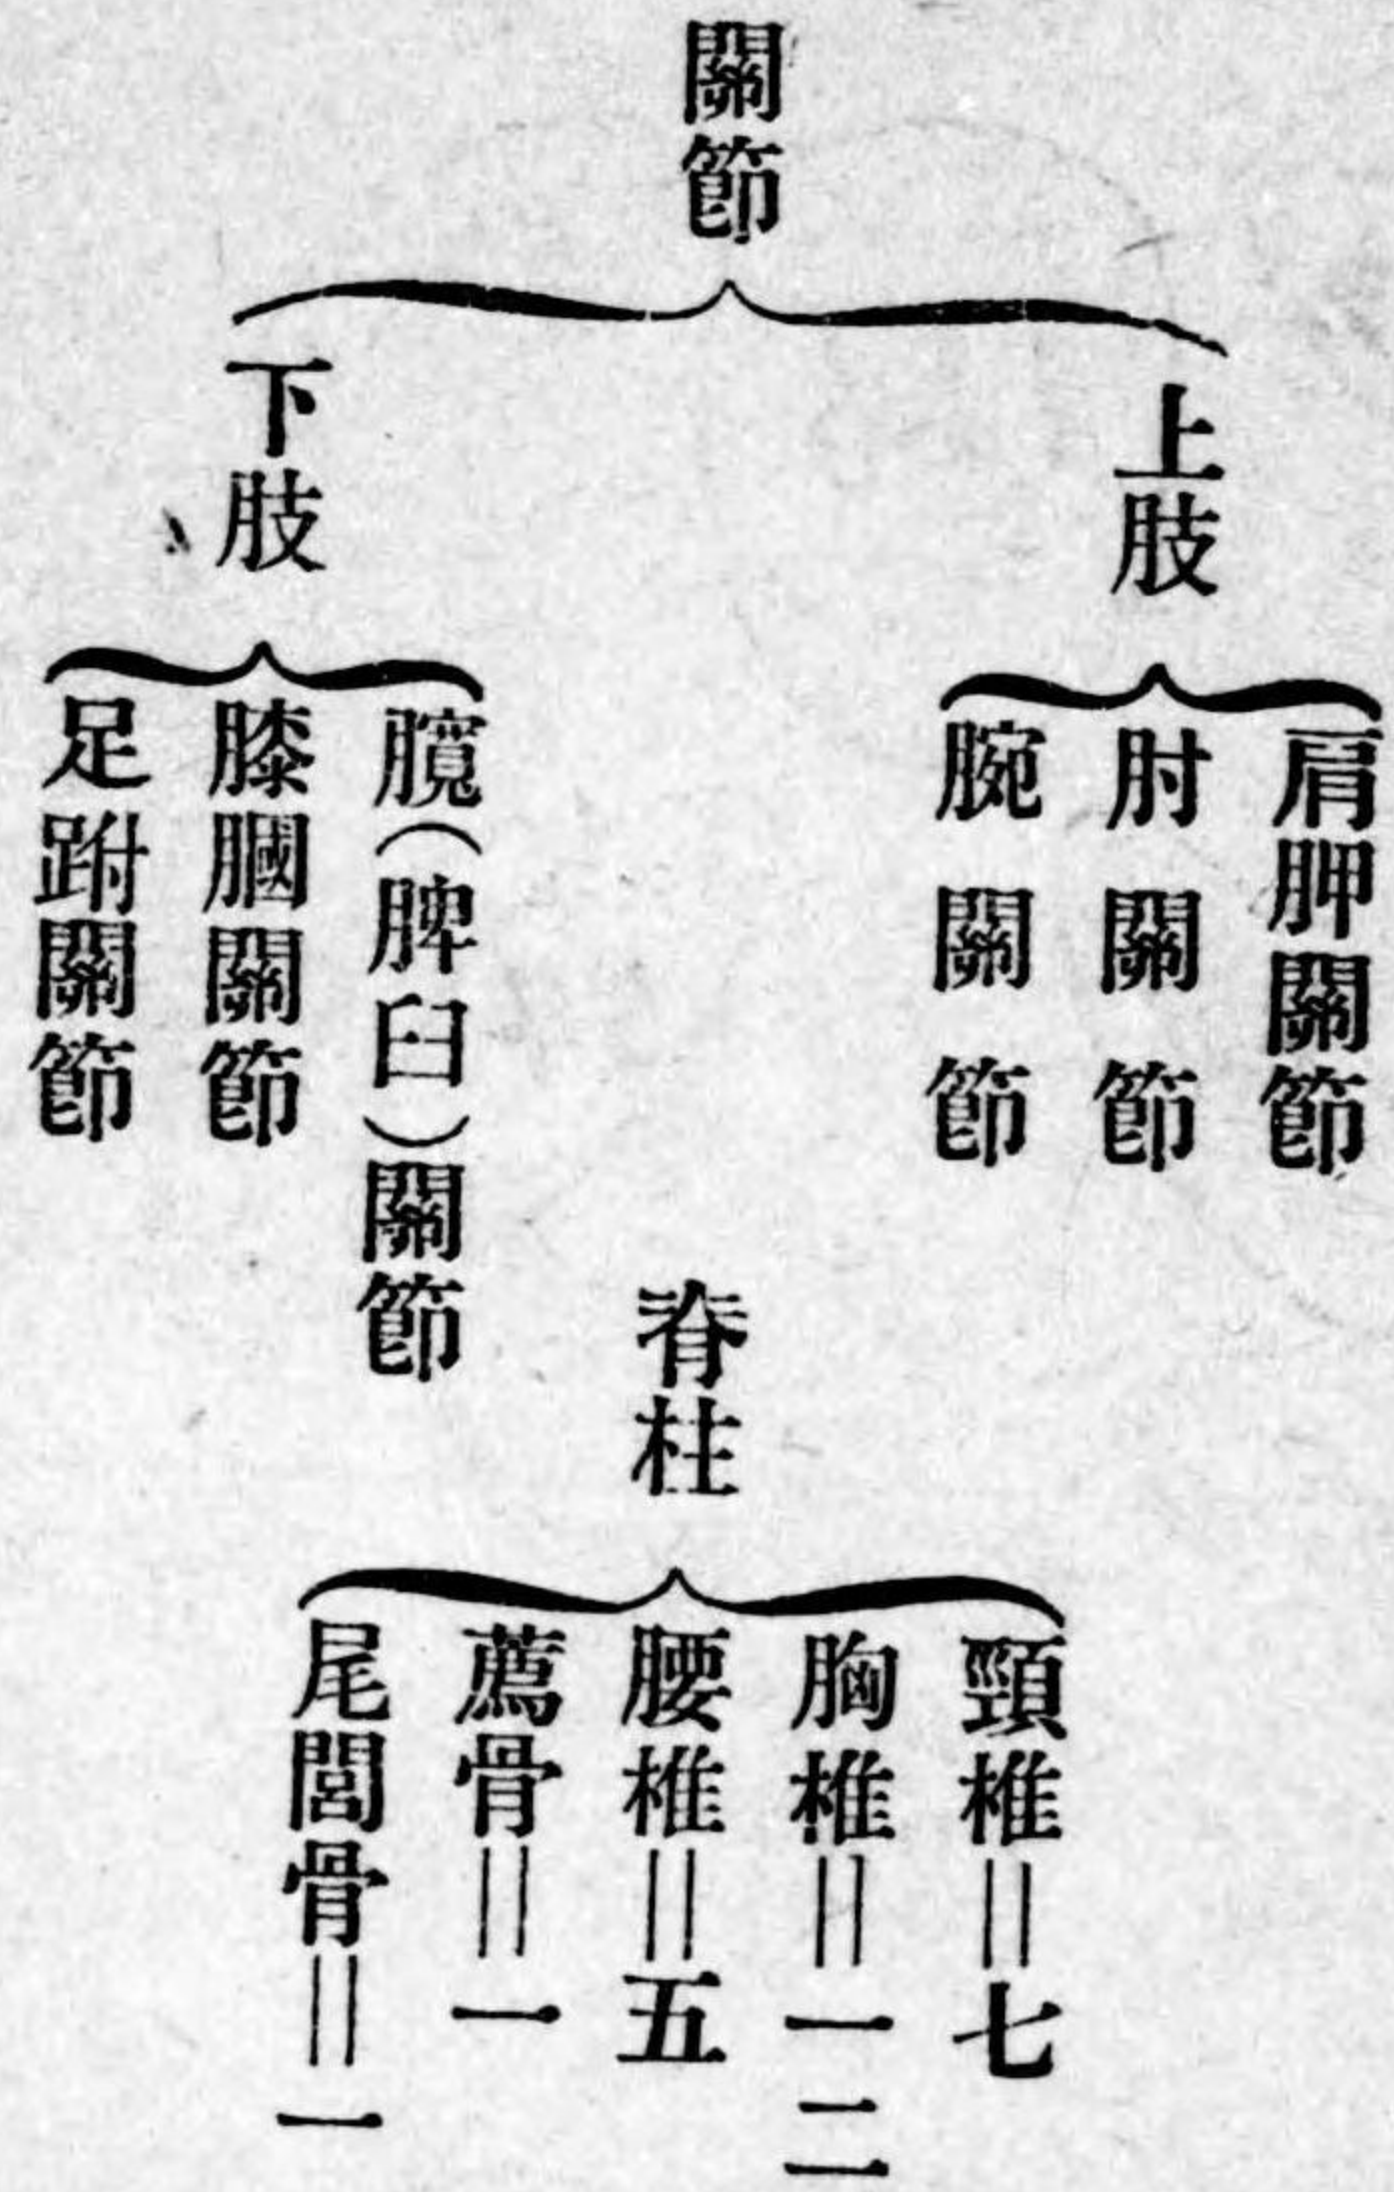 關節
上肢
肩胛關節
肘關節
腕關節
下肢
臗(脾臼)關節
膝膕關節
足跗關節
脊柱
頸椎＝七
胸椎＝一二
腰椎＝五
薦骨＝一
尾閭骨＝一